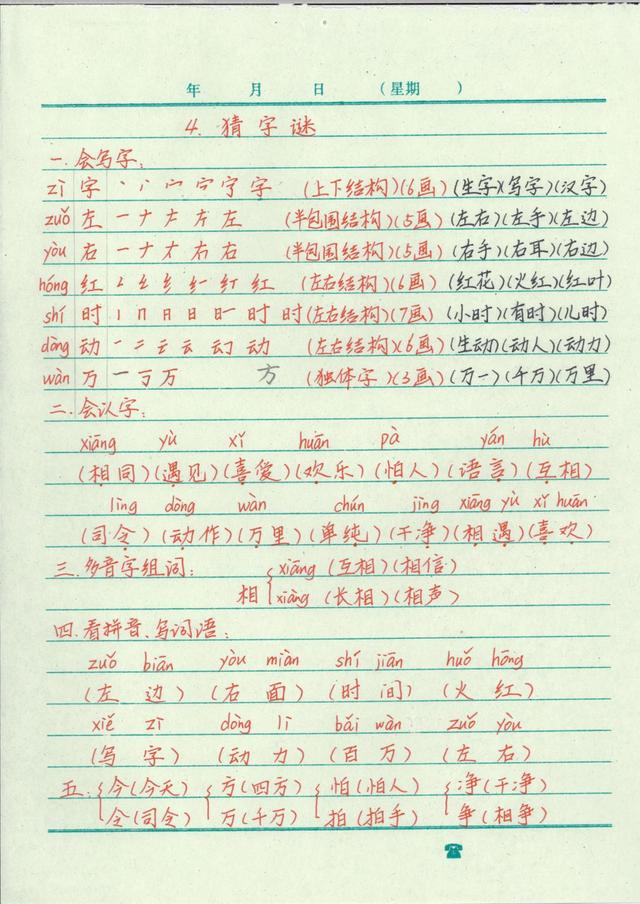 年 月 日 (星期 )
4. 猜字谜
一. 会写字:
zì 字 丶 丷 宀 宁 字 字 (上下结构)(6画)(生字)(写字)(汉字)
zuǒ 左 一 ナ 𠂇 左 左 (半包围结构)(5画)(左右)(左手)(左边)
yòu 右 一 ナ 𠂇 右 右 (半包围结构)(5画)(右手)(右耳)(右边)
hóng 红 纟 红 红 (左右结构)(6画)(红花)(火红)(红叶)
shí 时 丨 冂 日 日 时 时 (左右结构)(7画)(小时)(有时)(儿时)
dòng 动 一 二 云 云 动 动 (左右结构)(6画)(生动)(动人)(动力)
wàn 万 一 丂 万 方 (独体字)(3画)(万一)(千万)(万里)
二. 会认字:
xiāng yù xǐ huān pà yán hù
(相同)(遇见)(喜爱)(欢乐)(怕人)(语言)(互相)
lìng dòng wàn chún jìng xiāng yù xǐ huān
(司令)(动作)(万里)(单纯)(干净)(相遇)(喜欢)
三. 多音字组词: xiāng (互相)(相信)
相 xiàng (长相)(相声)
四. 看拼音、写词语:
zuǒ biān yòu miàn shí jiān huǒ hóng
(左边)(右面)(时间)(火红)
xiě zì dòng lì bǎi wàn zuǒ yòu
(写字)(动力)(百万)(左右)
五. 今(今天) 方(四方) 怕(怕人) 净(干净)
令(司令) 万(千万) 拍(拍手) 争(相争)
☎